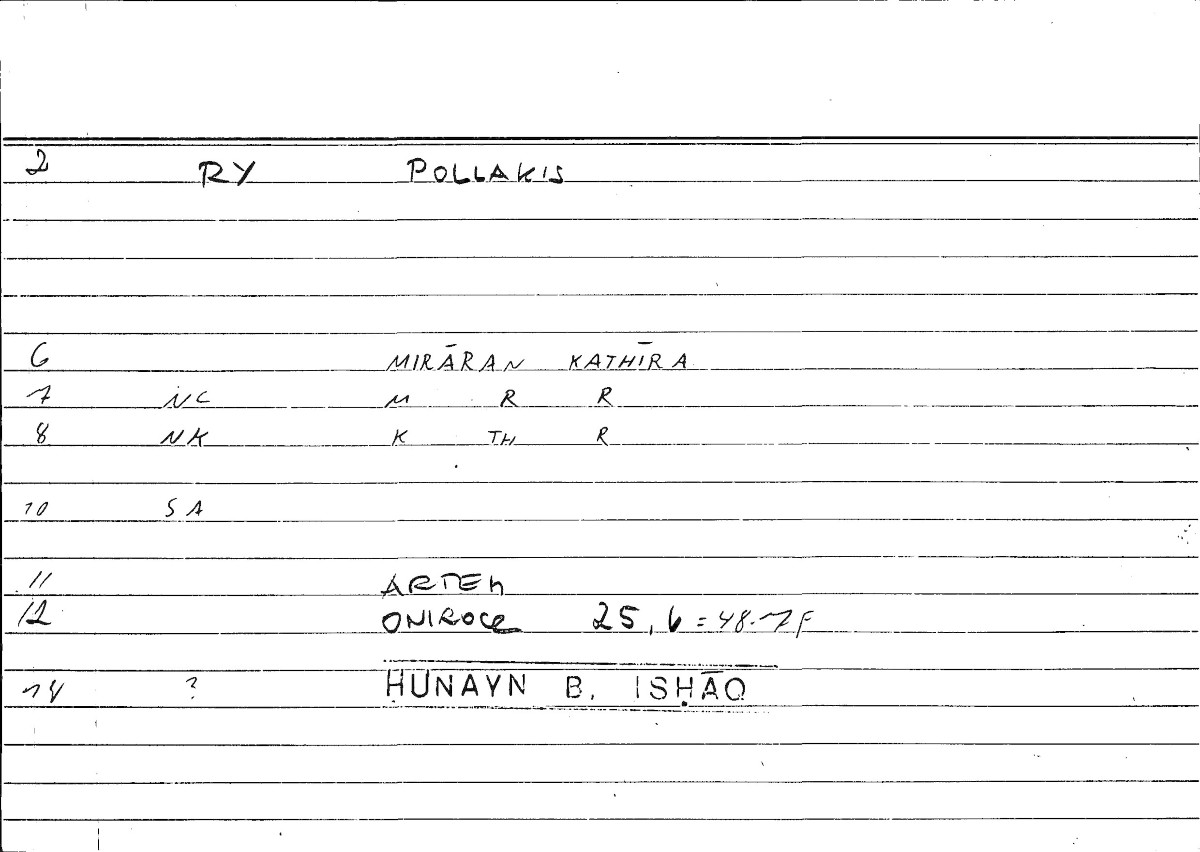 2 RY POLLAKIS
6 MIRĀRAN KATHĪRA
7 NC M R R
8 NK K TH R
10 SA
11 ARTEM
12 ONIROCR 25,6=48.7F
14 ? ḤUNAYN B. ISḤĀQ